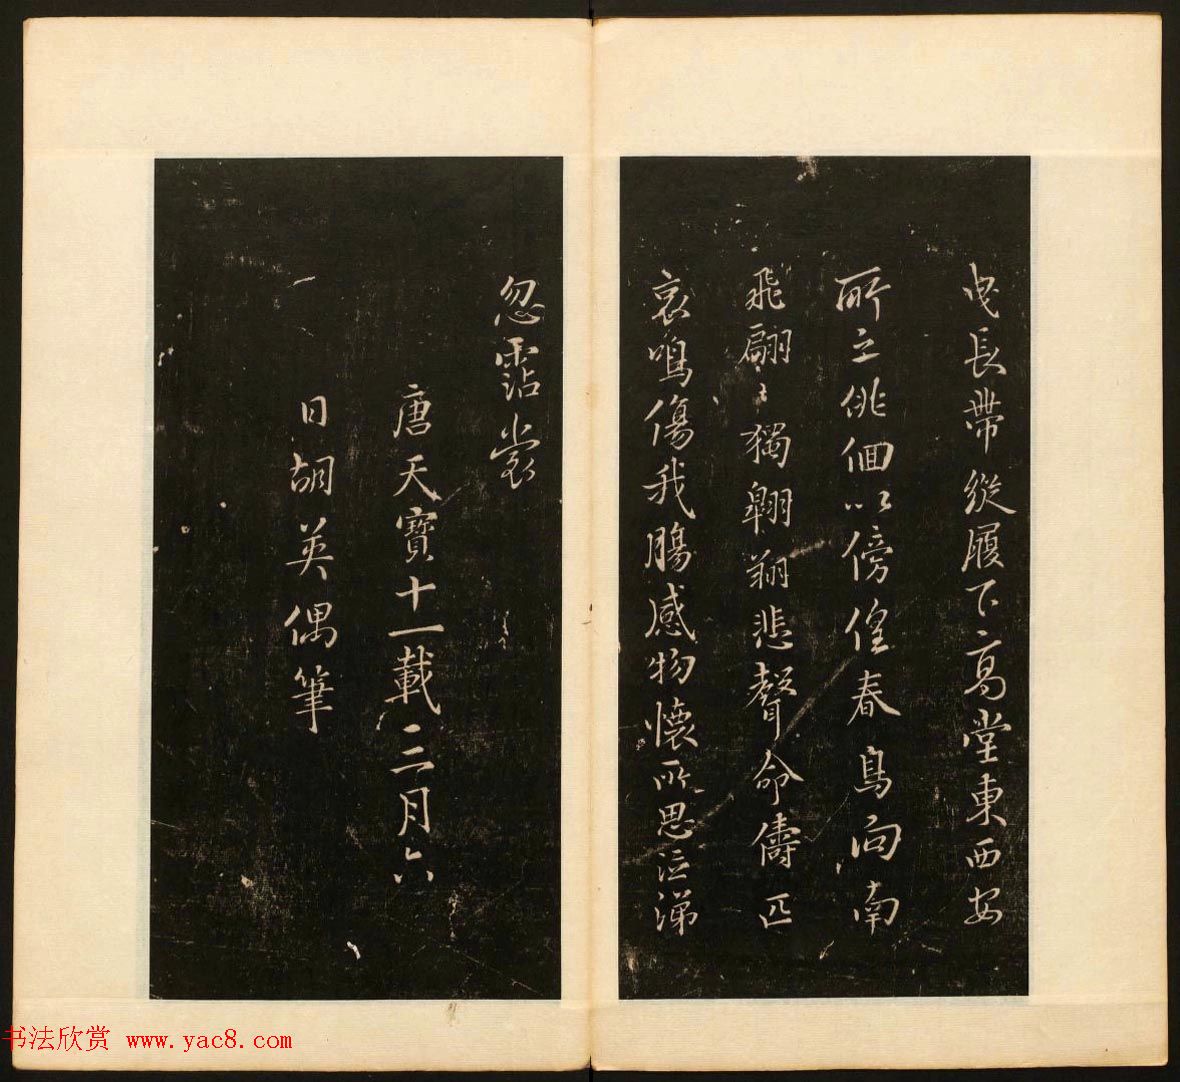 曳長帶縱履下高堂東西安
所之俳佪以傍徨春鳥向南
飛翩〻獨翱翔悲聲命儔匹
哀鳴傷我腸感物懷所思泣涕
忽霑裳
唐天寶十一載二月六
日胡英偶筆
书法欣赏 www.yac8.com